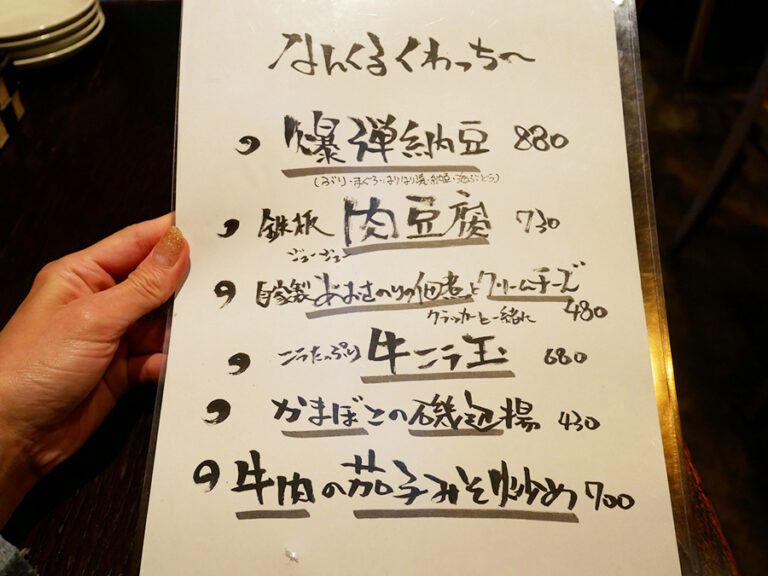 なんくるくわっち〜
爆弾納豆 880
(ぶり・まぐろ・はりはり漬・納豆・海ぶどう)
鉄板 肉豆腐 730
ジュージュー
自家製 あおさのりの佃煮とクリームチーズ
クラッカーと一緒に 480
ニラたっぷり 牛ニラ玉 680
かまぼこの磯辺揚 430
牛肉の茄子みそ炒め 700